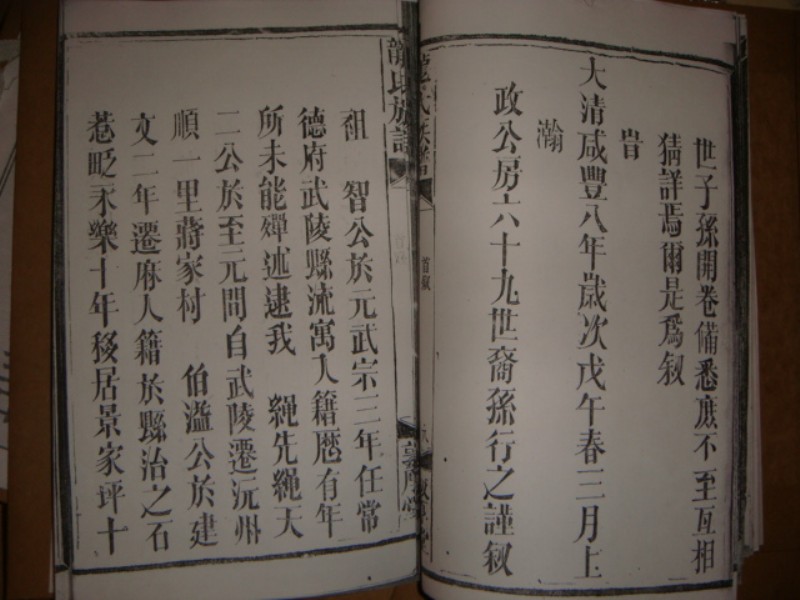 世子孫開卷備悉庶不至互相
猜詳焉爾是爲叙
旹
大清咸豐八年歲次戊午春三月上
瀚
政公房六十九世裔孫行之謹叙
氏族譜
首叙
龍氏族譜
敦厚堂
祖 智公於元武宗三年任常
德府武陵縣流寓入籍歷有年
所未能殫述逮我 繩先繩大
二公於至元間自武陵遷沅州
順一里蔣家村 伯溢公於建
文二年遷麻入籍於縣治之石
巷畂永樂十年移居景家坪十